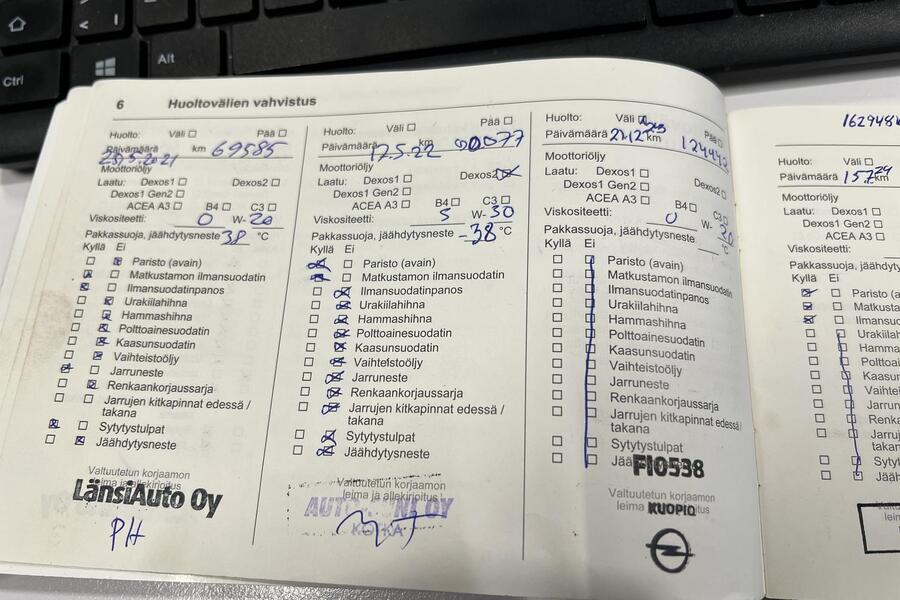 Ctrl
Alt
6 Huoltovälien vahvistus
Huolto: Väli Pää
Päivämäärä km 69585
25.5.2021
Moottoriöljy
Laatu: Dexos1 Dexos2
Dexos1 Gen2
ACEA A3 B4 C3
Viskositeetti: 0 W- 20
Pakkassuoja, jäähdytysneste 38 °C
Kyllä Ei
Paristo (avain)
Matkustamon ilmansuodatin
Ilmansuodatinpanos
Urakiilahihna
Hammashihna
Polttoainesuodatin
Kaasunsuodatin
Vaihteistoöljy
Jarruneste
Renkaankorjaussarja
Jarrujen kitkapinnat edessä /
takana
Sytytystulpat
Jäähdytysneste
Valtuutetun korjaamon
leima ja allekirjoitus
LänsiAuto Oy
PH
Huolto: Väli Pää
Päivämäärä 17.5.22 km
Moottoriöljy
Laatu: Dexos1 Dexos2
Dexos1 Gen2
ACEA A3 B4 C3
Viskositeetti: 5 W- 30
Pakkassuoja, jäähdytysneste -38 °C
Kyllä Ei
Paristo (avain)
Matkustamon ilmansuodatin
Ilmansuodatinpanos
Urakiilahihna
Hammashihna
Polttoainesuodatin
Kaasunsuodatin
Vaihteistoöljy
Jarruneste
Renkaankorjaussarja
Jarrujen kitkapinnat edessä /
takana
Sytytystulpat
Jäähdytysneste
Valtuutetun korjaamon
leima ja allekirjoitus
OY
KOTKA
Huolto: Väli Pää
Päivämäärä km
Moottoriöljy
Laatu: Dexos1 Dexos2
Dexos1 Gen2
ACEA A3 B4 C3
Viskositeetti: 0 W- 20
Pakkassuoja, jäähdytysneste °C
Kyllä Ei
Paristo (avain)
Matkustamon ilmansuodatin
Ilmansuodatinpanos
Urakiilahihna
Hammashihna
Polttoainesuodatin
Kaasunsuodatin
Vaihteistoöljy
Jarruneste
Renkaankorjaussarja
Jarrujen kitkapinnat edessä /
takana
Sytytystulpat
FI0538
Valtuutetun korjaamon
leima
KUOPIO
Huolto: Väli
Päivämäärä km
Moottoriöljy
Laatu: Dexos1
Dexos1 Gen2
ACEA A3
Viskositeetti:
Pakkassuoja, jäähdyty
Kyllä Ei
Paristo (a
Matkusta
Ilmansuo
Urakiilah
Hamma
Polttoa
Kaasun
Vaihte
Jarrun
Renka
Jarruj
taka
Sytyt
Jääh